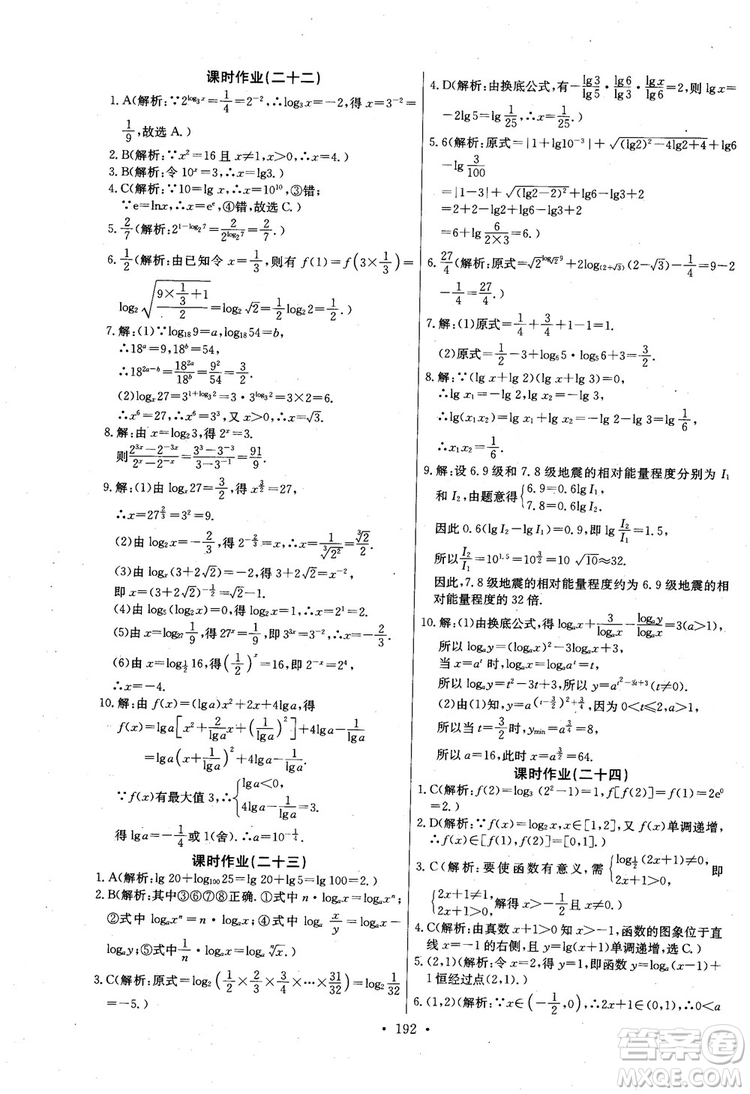 课时作业(二十二)
1. A(解析:∵2^{log₃x}=\frac{1}{4}=2^{-2},∴log₃x=-2,得 x=3^{-2}=
\frac{1}{9},故选 A.)
2. B(解析:∵x²=16 且 x≠1,x>0,∴x=4.)
3. B(解析:令 10^x=3,∴x=lg3.)
4. C(解析:∵10=lg x,∴x=10^{10},③错;
∵e=lnx,∴x=e^e,④错,故选 C.)
5. \frac{2}{7}(解析:2^{1-log₂7}=\frac{2}{2^{log₂7}}=\frac{2}{7}.)
6. \frac{1}{2}(解析:由已知令 x=\frac{1}{3},则有 f(1)=f(3×\frac{1}{3})=
log₂\sqrt{\frac{9×\frac{1}{3}+1}{2}}=log₂\sqrt{2}=\frac{1}{2},∴f(1)=\frac{1}{2}.)
7. 解:(1)∵log₁₈9=a,log₁₈54=b,
∴18^a=9,18^b=54,
∴18^{2a-b}=\frac{18^{2a}}{18^b}=\frac{9²}{54}=\frac{3}{2}.
(2)log_x27=3^{1+log₃2}=3·3^{log₃2}=3×2=6.
∴x⁶=27,∴x⁶=3³,又 x>0,∴x=\sqrt{3}.
8. 解:由 x=log₂3,得 2^x=3,
则\frac{2^{3x}-2^{-3x}}{2^x-2^{-x}}=\frac{3³-3^{-3}}{3-3^{-1}}=\frac{91}{9}.
9. 解:(1)由 log_x27=\frac{3}{2},得 x^{\frac{3}{2}}=27,
∴x=27^{\frac{2}{3}}=3²=9.
(2)由 log₂x=-\frac{2}{3},得 2^{-\frac{2}{3}}=x,∴x=\frac{1}{\sqrt[3]{2²}}=\frac{\sqrt[3]{2}}{2}.
(3)由 log_x(3+2\sqrt{2})=-2,得 3+2\sqrt{2}=x^{-2},
即 x=(3+2\sqrt{2})^{-\frac{1}{2}}=\sqrt{2}-1.
(4)由 log₅(log₂x)=0,得 log₂x=1,∴x=2¹=2.
(5)由 x=log₂₇\frac{1}{9},得 27^x=\frac{1}{9},即 3^{3x}=3^{-2},∴x=-\frac{2}{3}.
(6)由 x=log_{\frac{1}{2}}16,得(\frac{1}{2})^x=16,即 2^{-x}=2⁴,
∴x=-4.
10. 解:由 f(x)=(lga)x²+2x+4lga,得
f(x)=lga[x²+\frac{2}{lga}x+\frac{1}{(lga)²}]+4lga-\frac{1}{lga}
=lga(x+\frac{1}{lga})²-\frac{1}{lga}+4lga.
∵f(x)有最大值 3,∴{lga<0, 4lga-\frac{1}{lga}=3.
得 lga=-\frac{1}{4}或 1(舍).∴a=10^{-\frac{1}{4}}.
课时作业(二十三)
1. A(解析:lg 20+log₁₀₀25=lg20+lg5=lg100=2.)
2. B(解析:其中③⑥⑦⑧正确.①式中 n·log_ax=log_ax^n;
②式中 log_ax^n=n·log_ax;④式中 log_a\frac{x}{y}=log_ax-
log_ay;⑤式中\frac{1}{n}log_ax=log_a\sqrt[n]{x}.)
3. C(解析:原式=log₂(\frac{1}{2}×\frac{2}{3}×\frac{3}{4}×…×\frac{31}{32})=log₂\frac{1}{32}
=-5.)
4. D(解析:由换底公式,有-\frac{lg3}{lg5}·\frac{lg6}{lg3}·\frac{lgx}{lg6}=2,则 lgx=
-2lg5=lg\frac{1}{25},∴x=\frac{1}{25}.)
5. 6(解析:原式=|1+lg10^{-3}|+\sqrt{(lg2)²-4lg2+4}+lg6
-lg\frac{3}{100}
=|1-3|+\sqrt{(lg2-2)²}+lg6-lg3+2
=2+2-lg2+lg6-lg3+2
=6+lg\frac{6}{2×3}=6.)
6. \frac{27}{4}(解析:原式=\sqrt{2}^{log_{\sqrt{2}}9}+log_{(2+\sqrt{3})}(2-\sqrt{3})-\frac{1}{4}=9-2-
\frac{1}{4}=\frac{27}{4}.)
7. 解:(1)原式=\frac{1}{4}+\frac{3}{4}+1-1=1.
(2)原式=1-log₆5+log₆5+\frac{1}{4}=\frac{5}{4}.
8. 解:∵(lg x+lg 2)(lg x+lg 3)=0,
∴lg x₁=-lg 2,lg x₂=-lg 3,
∴lg(x₁x₂)=lg x₁+lg x₂=-lg 6=lg\frac{1}{6},
∴x₁x₂=\frac{1}{6}.
9. 解:设 6.9 级和 7.8 级地震的相对能量程度分别为 I₁
和 I₂,由题意得{6.9=0.6lg I₁, 7.8=0.6lg I₂.
因此 0.6(lgI₂-lgI₁)=0.9,即 lg\frac{I₂}{I₁}=1.5,
所以\frac{I₂}{I₁}=10^{1.5}=10^{\frac{3}{2}}=10\sqrt{10}≈32.
因此,7.8 级地震的相对能量程度约为 6.9 级地震的相
对能量程度的 32 倍.
10. 解:(1)由换底公式,得 log_ax+\frac{3}{log_ax}-\frac{log_ay}{log_ax}=3(a>1),
所以 log_ay=(log_ax)²-3log_ax+3.
当 x=a^t 时,log_ax=log_aa^t=t.
所以 log_ay=t²-3t+3,故 y=a^{t²-3t+3}(t≠0).
(2)由(1)知,y=a^{(t-\frac{3}{2})²+\frac{3}{4}},因为 0<t≤2,a>1,
所以当 t=\frac{3}{2}时,y_{min}=a^{\frac{3}{4}}=8,
所以 a=16,此时 x=a^{\frac{3}{2}}=64.
课时作业(二十四)
1. C(解析:f(2)=log₃(2²-1)=log₃3=1,f[f(2)]=2e⁰
=2.)
2. D(解析:∵f(x)=log₂x,x∈[1,2],f(x)单调递增,
∴f(x)∈[0,1].)
3. C(解析:要使函数有意义,需{log_{\frac{1}{2}}(2x+1)≠0, 2x+1>0,即
{2x+1≠1, 2x+1>0,解得 x>-\frac{1}{2}且 x≠0.)
4. C(解析:由真数 x+1>0 知 x>-1,函数的图象位于直
线 x=-1 的右侧,且单调递增,选 C.)
5. (2,1)(解析:令 x-1=1,得 x=2,y=1,即函数 f(x)+
1 恒经过点(2,1).)
6. (1,2)(解析:∵x∈(-\frac{1}{2},0),∴x+1∈(\frac{1}{2},1),∴0<a
· 192 ·
答案圈
MXQE.COM